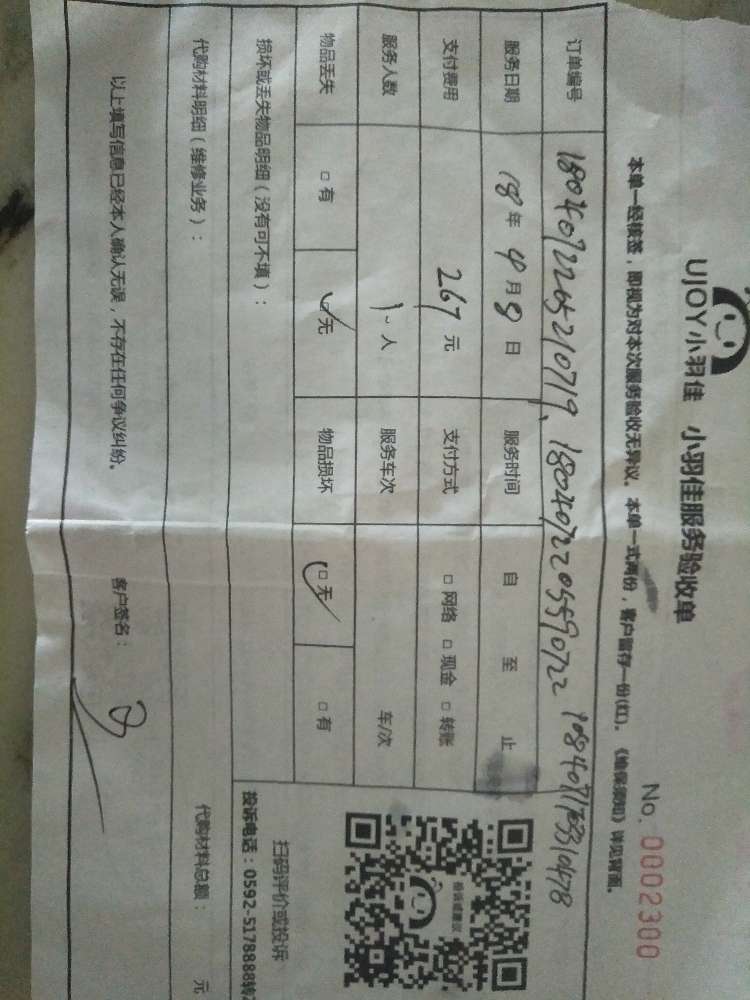 UJOY小羽佳 小羽佳服务验收单
No. 0002300
本单一经核签，即视为对本次服务验收无异议。本单一式两份，客户留存一份(红)。《维保须知》详见背面。
订单编号
服务日期 18年4月8日 服务时间 自 至 止
支付费用 267元 支付方式 □网络 □现金 □转账
服务人数 1人 服务车次 车/次
物品丢失 □有 □无 物品损坏 □无 □有
损坏或丢失物品明细（没有可不填）：
扫码评价或投诉
投诉电话：0592-5178888转
代购材料明细（维修业务）： 代购材料总额： 元
以上填写信息已经本人确认无误，不存在任何争议纠纷。 客户签名：